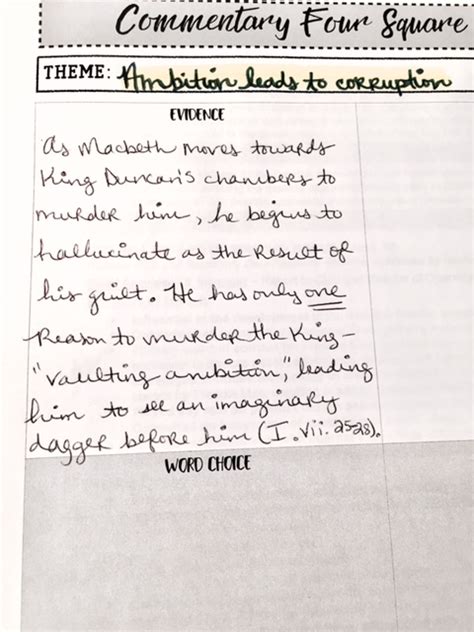 Commentary Four Square
THEME: Ambition leads to corruption
EVIDENCE
As Macbeth moves towards
King Duncan's chambers to
murder him, he begins to
hallucinate as the result of
his guilt. He has only one
reason to murder the King -
"vaulting ambition," leading
him to see an imaginary
dagger before him (I.vii.25-28).
WORD CHOICE